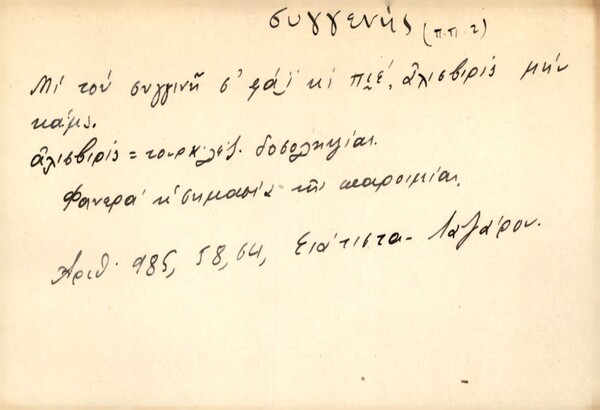 συγγενής (π.π. 2)
Μί τού συγγινῆ σ' φάϊ κί πιέ, ἀλισβιρίς μήν
κάμς.
ἀλισβιρίς = τουρκ. λέξ. δοσοληψίαι.
Φανερά ἡ σημασία τῆς παροιμίας.
Ἀριθ. 985, 58, 64, Σιάτιστα - Λαζάρου.